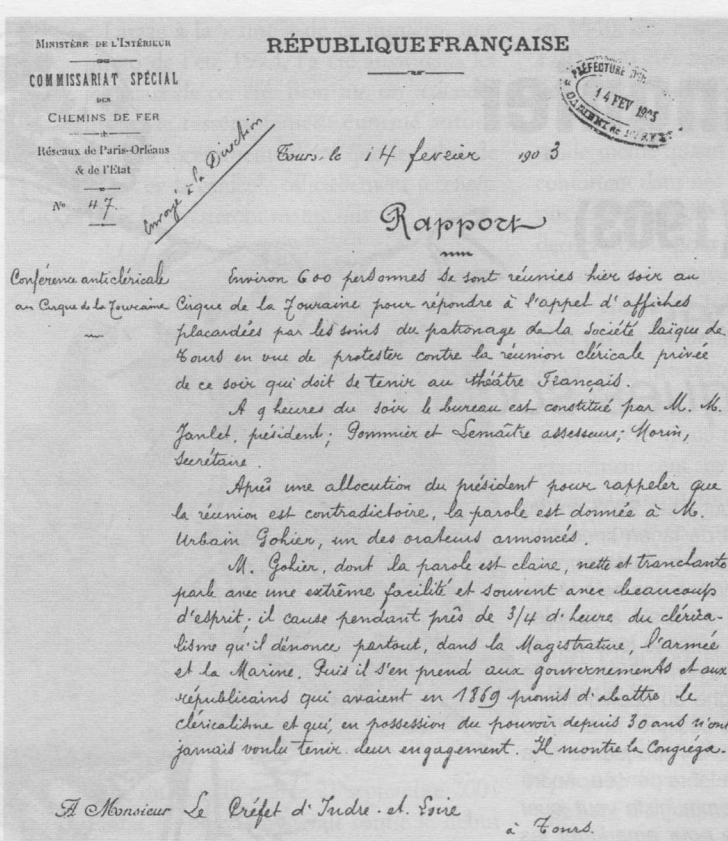 MINISTÈRE DE L'INTÉRIEUR
COMMISSARIAT SPÉCIAL
DES
CHEMINS DE FER
Réseaux de Paris-Orléans
& de l'État
N° 47.
RÉPUBLIQUE FRANÇAISE
PRÉFECTURE
14 FEV
Envoyé à la Direction
Tours, le 14 fevrier 1903
Rapport
Conférence anticléricale
au Cirque de la Touraine
Environ 600 personnes se sont réunies hier soir au
Cirque de la Touraine pour répondre à l'appel d'affiches
placardées par les soins du patronage de la Société laïque de
Tours en vue de protester contre la réunion cléricale privée
de ce soir qui doit se tenir au théâtre Français.
A 9 heures du soir le bureau est constitué par M. M.
Janlet, président; Pommier et Lemaître assesseurs; Morin,
secrétaire.
Après une allocution du président pour rappeler que
la réunion est contradictoire, la parole est donnée à M.
Urbain Gohier, un des orateurs annoncés.
M. Gohier, dont la parole est claire, nette et tranchante
parle avec une extrême facilité et souvent avec beaucoup
d'esprit; il cause pendant près de 3/4 d'heure du clérica-
lisme qu'il dénonce partout, dans la Magistrature, l'armée
et la Marine. Puis il s'en prend aux gouvernements et aux
républicains qui avaient en 1869 promis d'abattre le
cléricalisme et qui, en possession du pouvoir depuis 30 ans n'ont
jamais voulu tenir leur engagement. Il montre la Congréga-
A Monsieur Le Préfet d'Indre-et-Loire
à Tours.